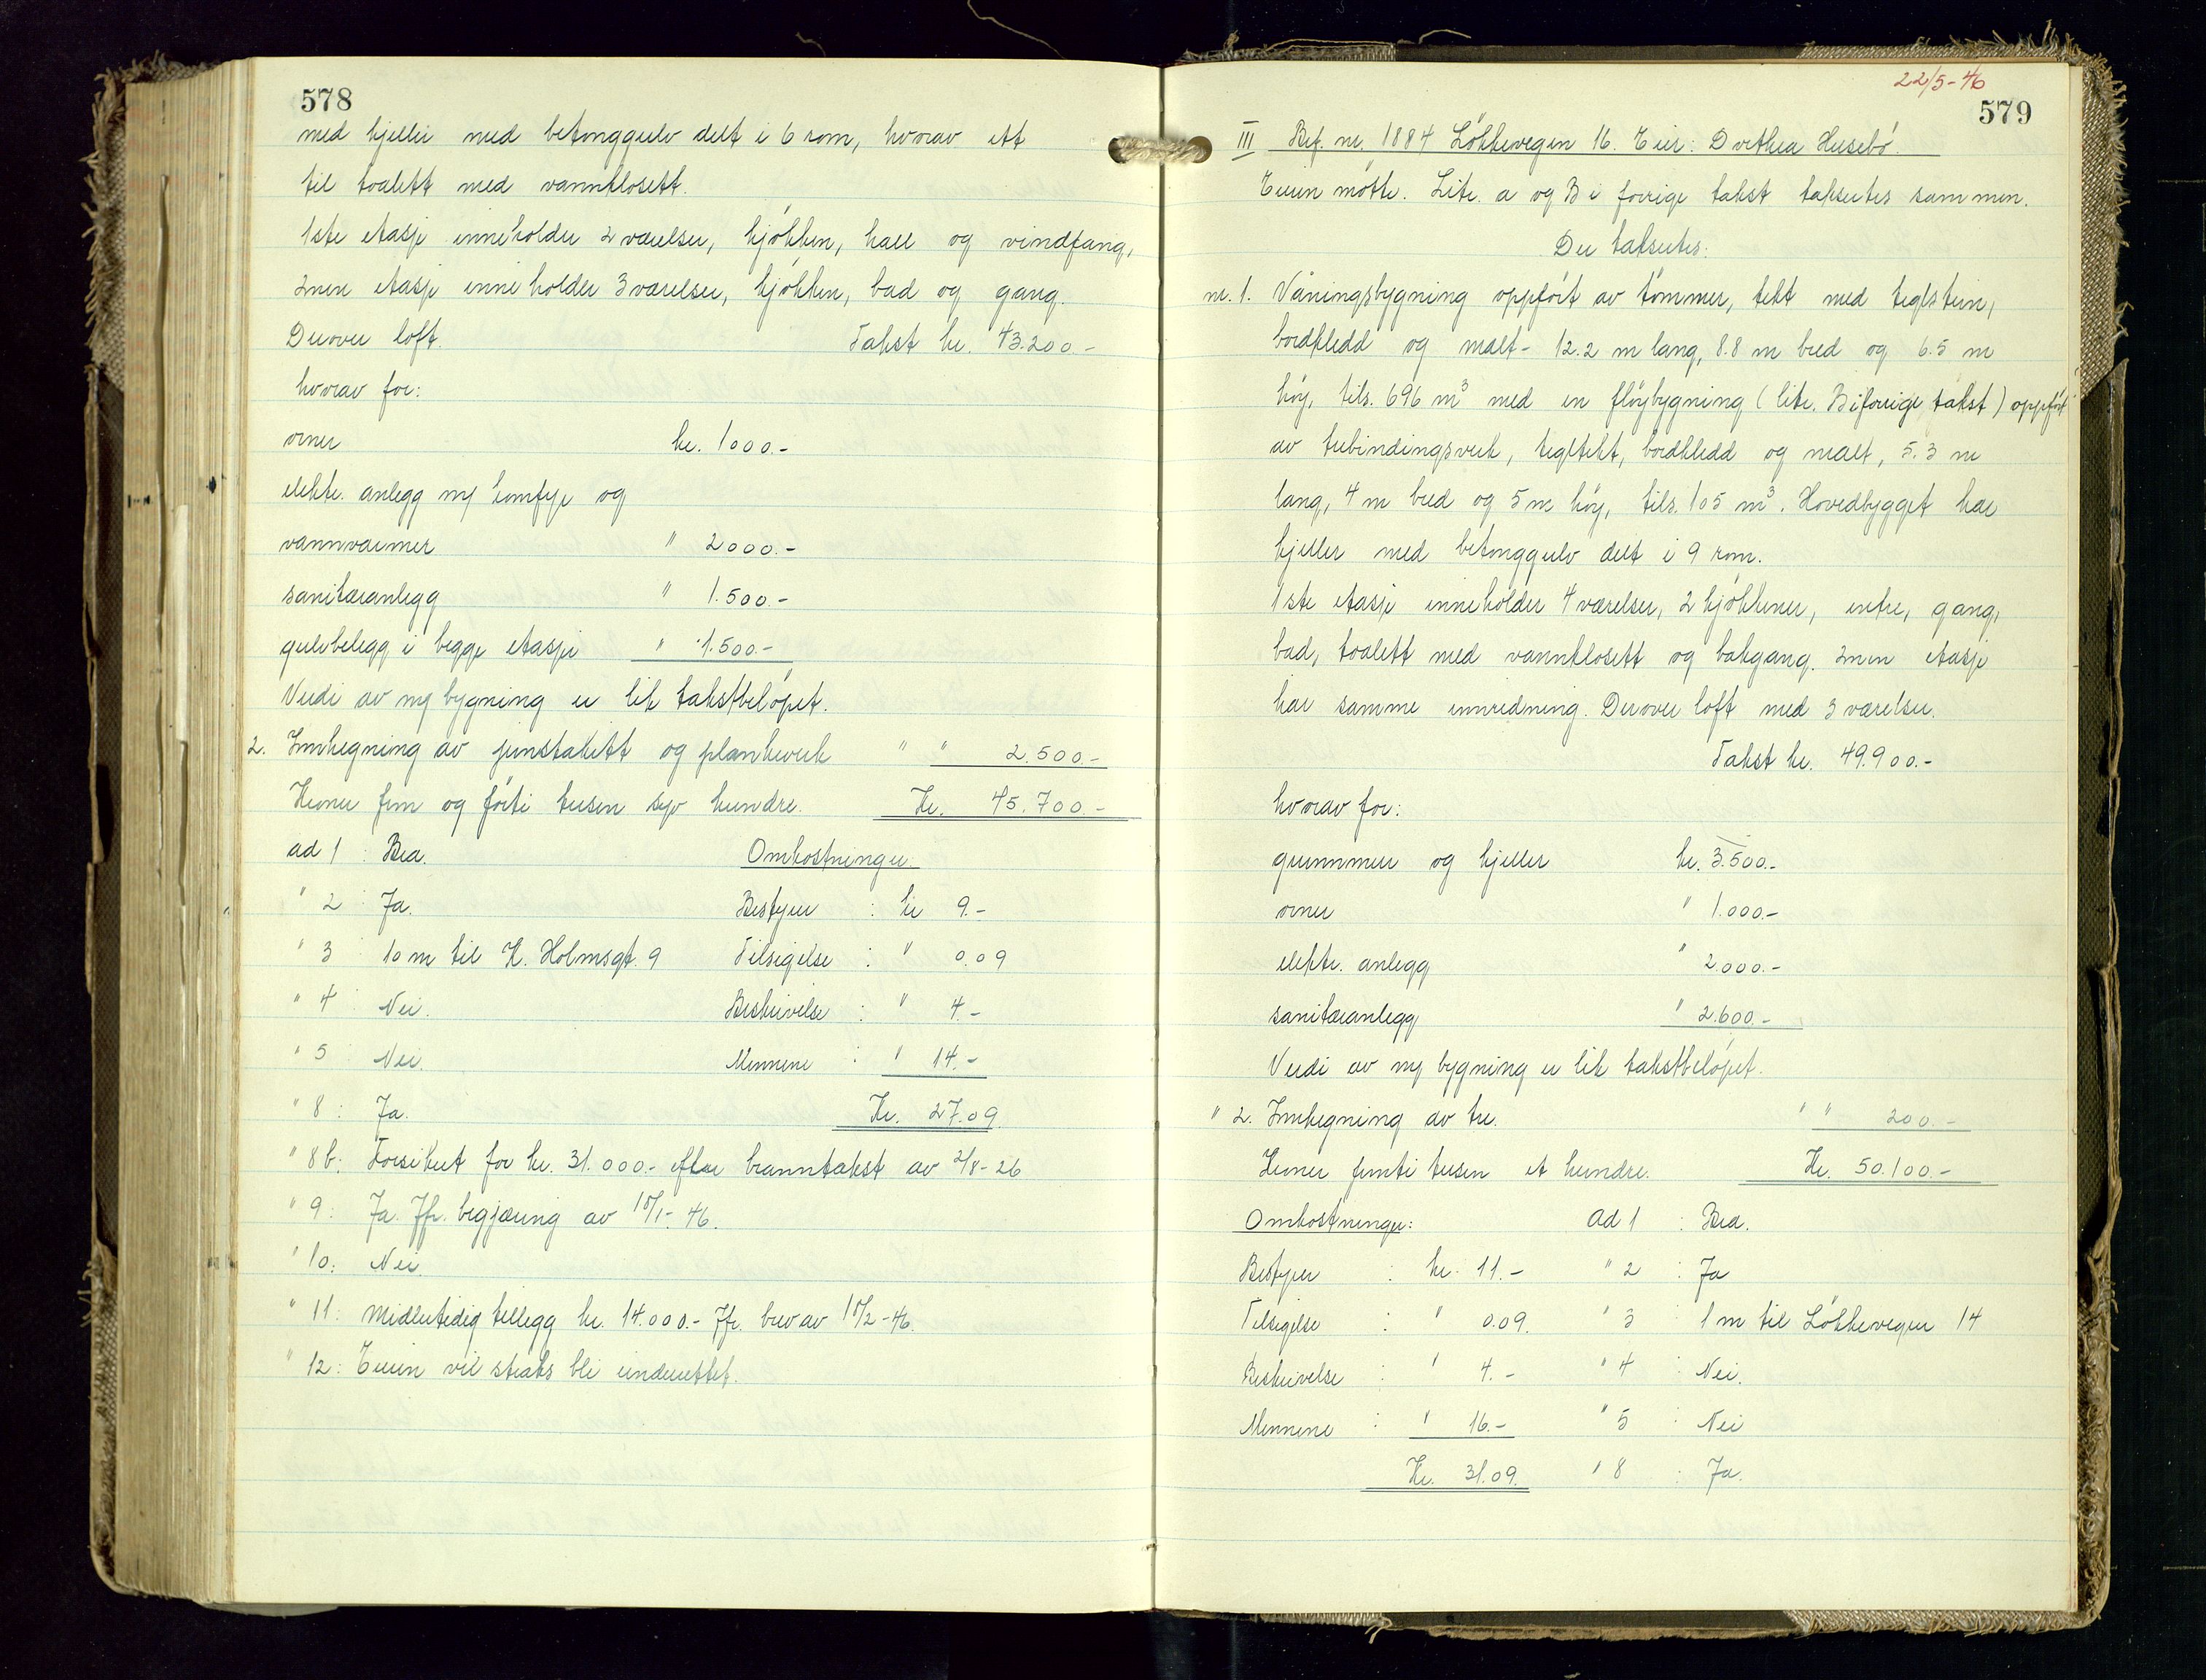 578
med kjeller med betonggulv delt i 6 rom, hvorav ett
til toalett med vannklosett.
1ste etasje inneholder 2 værelser, kjøkken, hall og vindfang,
2nen etasje inneholder 3 værelser, kjøkken, bad og gang.
Derover loft. Takst kr. 43.200.-
hvorav for:
ovner kr. 1000.-
elektr. anlegg m/ komfyr og
vannvarmer " 2000.-
sanitæranlegg " 1.500.-
gulvbelegg i begge etasjer " 1.500.-
Verdi av ny bygning er lik takstbeløpet.
2. Innhegning av jernstakitt og plankeverk " " 2.500.-
Kroner fem og førti tusen syv hundre. Kr. 45.700.-
ad 1 : Bra. Omkostninger.
" 2 : Ja. Bestyrer : kr 9.-
" 3 10 m til K. Holmsgt. 9 Tilsigelse : " 0.09
" 4 : Nei. Beskrivelse : " 4.-
" 5 : Nei. Mennene : " 14.-
" 8 : Ja. Kr. 27.09
" 8b: Forsikret for kr. 31.000.- efter branntakst av 2/8-26
" 9: Ja. Jfr. begjæring av 18/1-46.
" 10: Nei.
" 11: Midlertidig tillegg kr. 14.000.- Jfr. brev av 18/2-46.
" 12: Eieren vil straks bli underrettet.
22/5-46
579
III Bef. nr. 1884 Løkkevegen 16. Eier: Dorthea Husebø.
Eieren møtte. Litr. a og B i forrige takst takseres sammen.
Der takseres:
nr. 1. Våningsbygning oppført av tømmer, tekt med teglstein,
bordkledd og malt - 12.2 m lang, 8.8 m bred og 6.5 m
høy, tils. 696 m³ med en fløybygning (litr. B i forrige takst) oppført
av trebindingsverk, tegltekt, bordkledd og malt, 5.3 m
lang, 4 m bred og 5 m høy, tils. 105 m³. Hovedbygget har
kjeller med betonggulv delt i 9 rom.
1ste etasje inneholder 4 værelser, 2 kjøkkener, entre, gang,
bad, toalett med vannklosett og bakgang. 2nen etasje
har samme innredning. Derover loft med 3 værelser.
Takst kr. 49.900.-
hvorav for:
grunnmur og kjeller kr. 3.500.-
ovner " 1.000.-
elektr. anlegg " 2.000.-
sanitæranlegg " 2.600.-
Verdi av ny bygning er lik takstbeløpet.
" 2. Innhegning av tre. " " 200.-
Kroner femti tusen et hundre. Kr. 50.100.-
Omkostninger: Ad 1 : Bra.
Bestyrer : kr. 11.- " 2 : Ja
Tilsigelse : " 0.09. " 3 1 m til Løkkevegen 14
Beskrivelse : " 4.- " 4 : Nei.
Mennene : " 16.- " 5 : Nei
Kr. 31.09. " 8 : Ja.